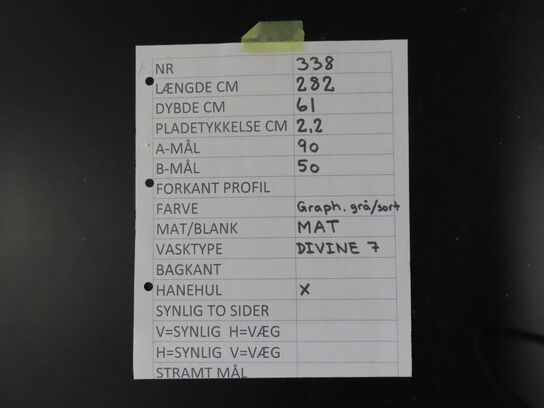 NR 338
LÆNGDE CM 282
DYBDE CM 61
PLADETYKKELSE CM 2,2
A-MÅL 90
B-MÅL 50
FORKANT PROFIL
FARVE Graph. grå/sort
MAT/BLANK MAT
VASKTYPE DIVINE 7
BAGKANT
HANEHUL X
SYNLIG TO SIDER
V=SYNLIG H=VÆG
H=SYNLIG V=VÆG
STRAMT MÅL